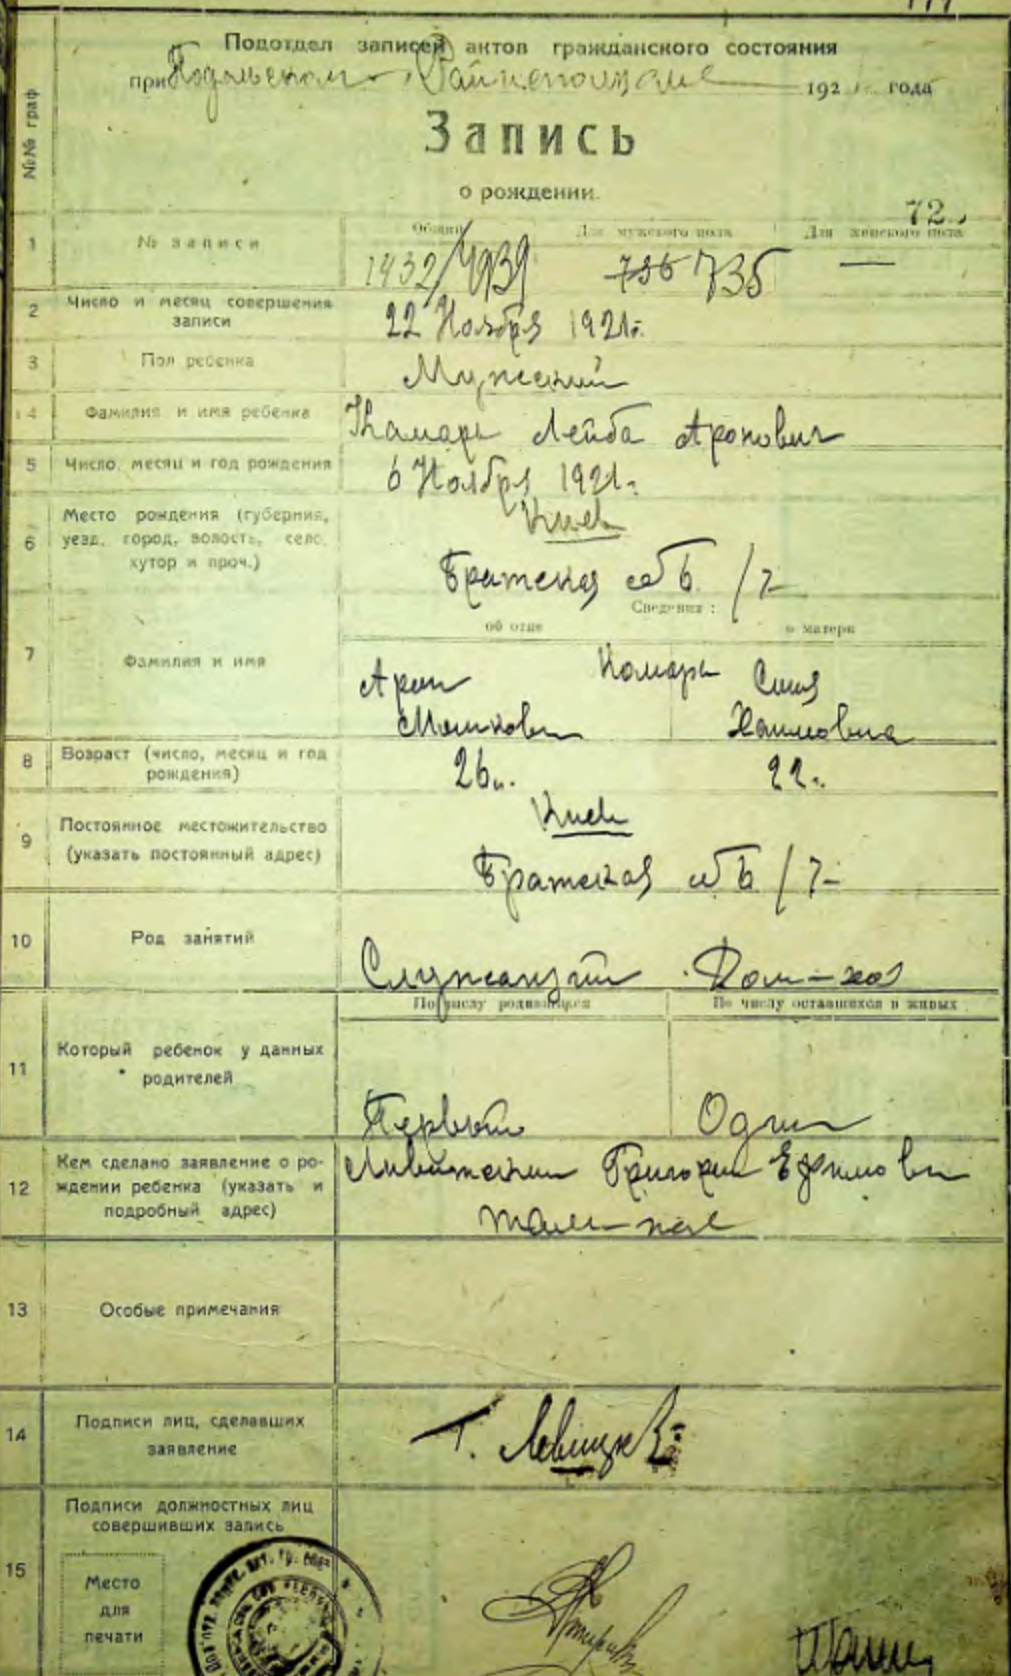 Подотдел записей актов гражданского состояния
при Подольском Райисполкоме 192 года
№№ граф
Запись
о рождении.
72
1 № записи Общий Для мужского пола Для женского пола
1432/1939 736 735 —
2 Число и месяц совершения записи
22 Ноября 1921г.
3 Пол ребенка
Мужеский
4 Фамилия и имя ребенка
Комарь Лейба Аронович
5 Число, месяц и год рождения
6 Ноября 1921г.
6 Место рождения (губерния,
уезд, город, волость, село,
хутор и проч.)
Киев
Братская 7
Сведения:
об отце о матери
7 Фамилия и имя
Комарь
Арон
Мошкович Хаимовна
8 Возраст (число, месяц и год
рождения)
26 22
9 Постоянное местожительство
(указать постоянный адрес)
Киев
Братская 7
10 Род занятий
Служащий Дом-хоз
По числу родившихся По числу оставшихся в живых
11 Который ребенок у данных
родителей
Первый Один
12 Кем сделано заявление о ро-
ждении ребенка (указать и
подробный адрес)
Григорий Ефимович
там-же
13 Особые примечания
14 Подписи лиц, сделавших
заявление
Г.
15 Подписи должностных лиц
совершивших запись
Место
для
печати